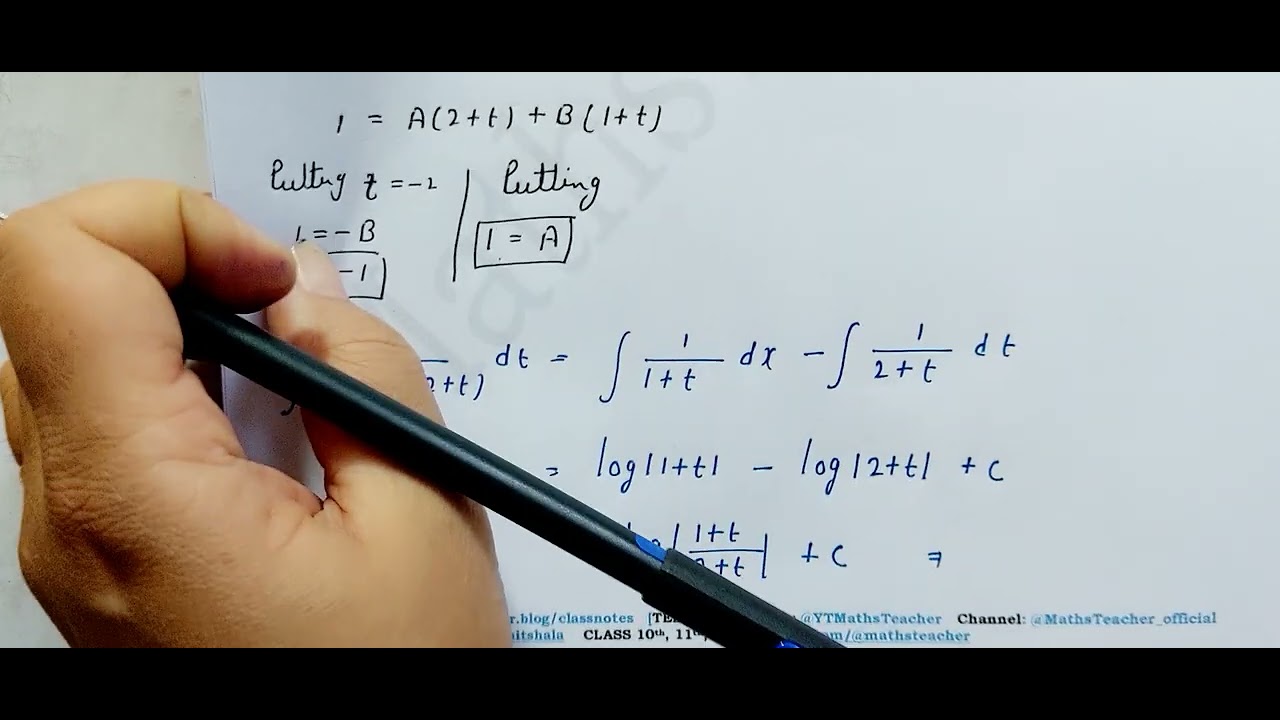 1 = A(2+t) + B(1+t)
Putting t = -2 | Putting
1 = -B
1 = A
-1
dt = ∫ 1/(1+t) dx - ∫ 1/(2+t) dt
2+t)
= log|1+t| - log|2+t| + C
|1+t/2+t| + C =
r.blog/classnotes @YTMathsTeacher Channel: @MathsTeacher_official
itshala CLASS 10th, 11th, om/@mathsteacher